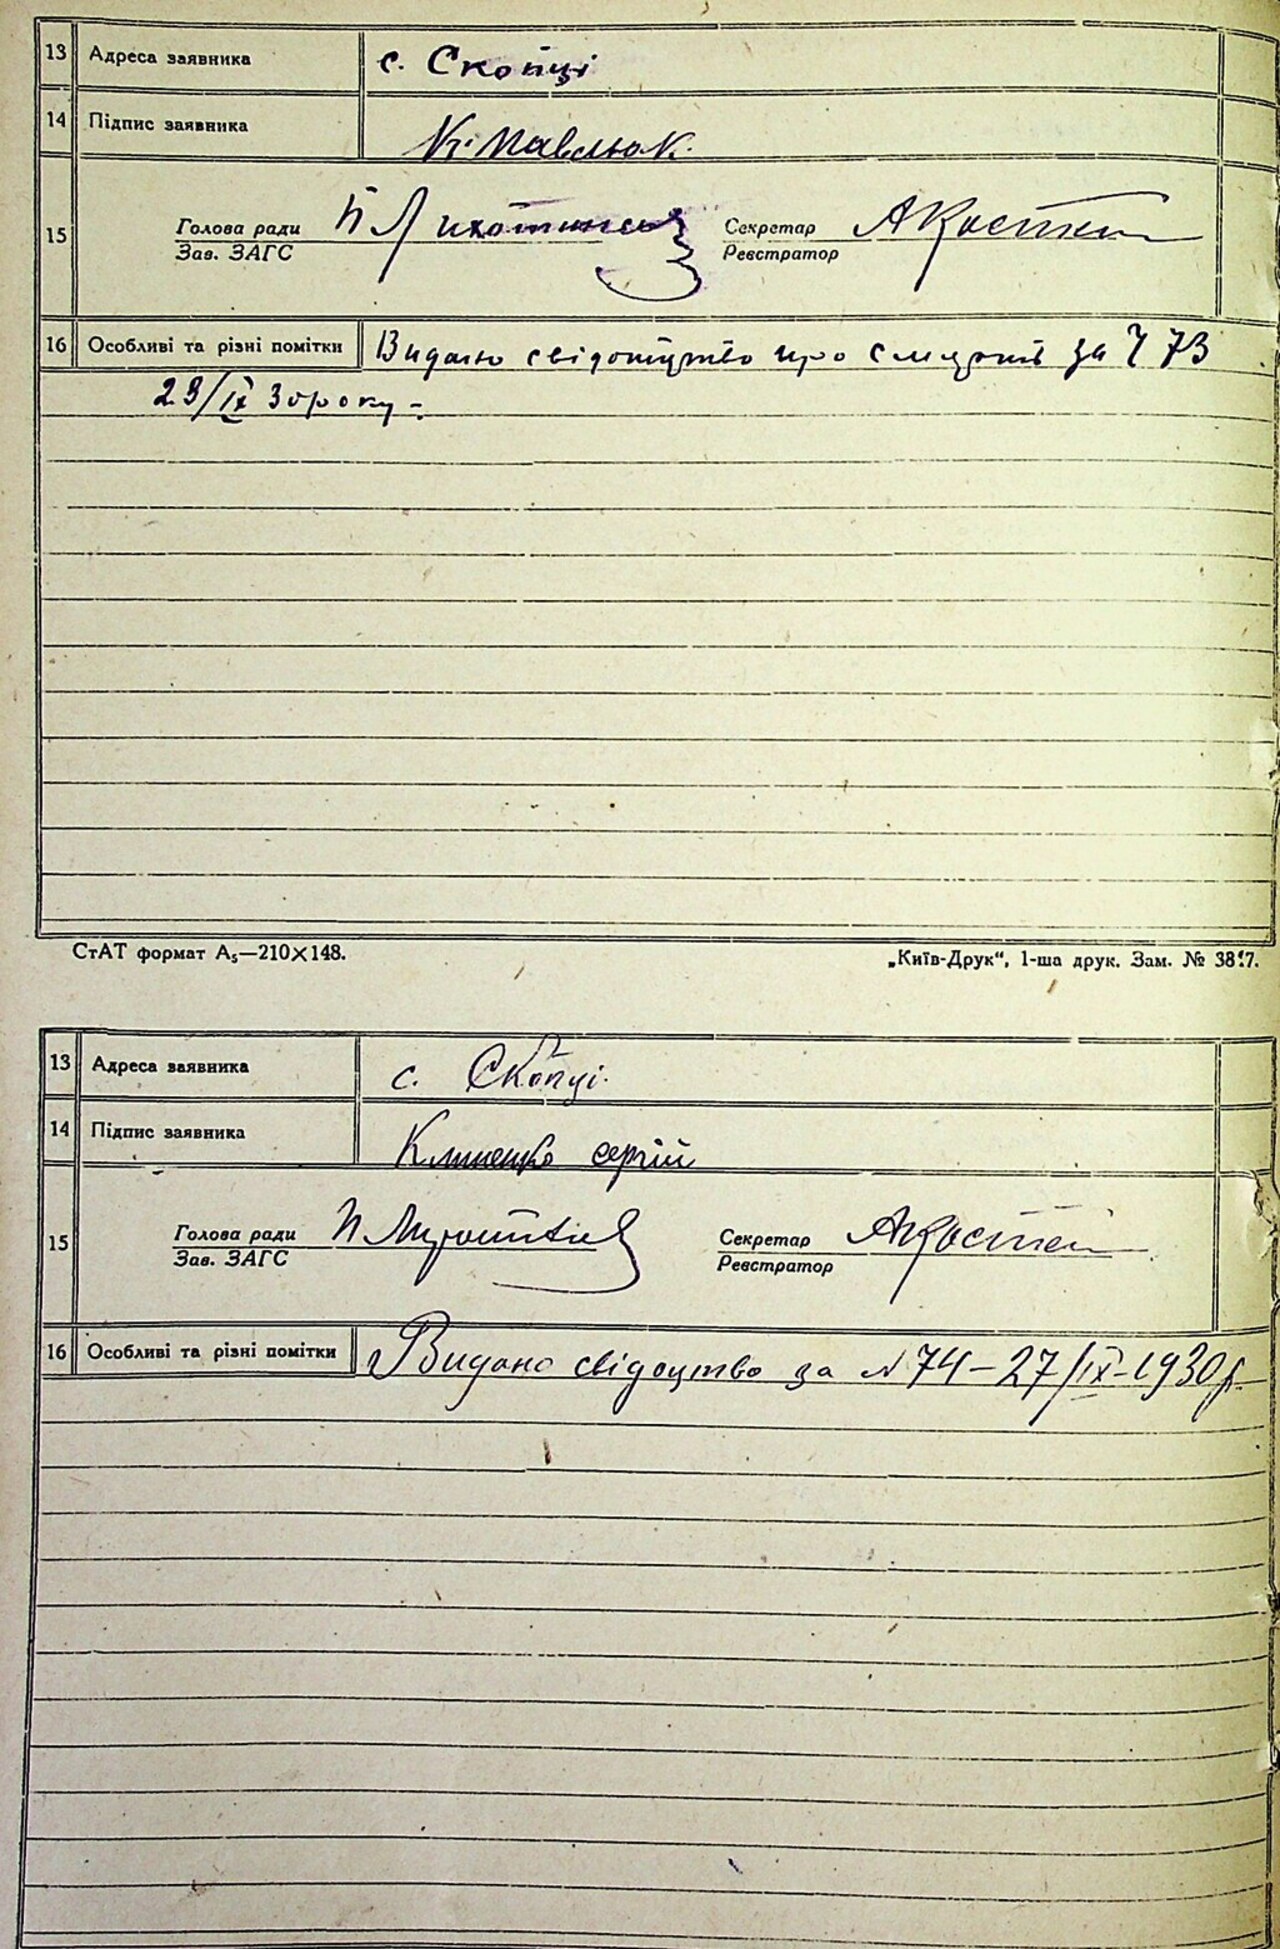 13 Адреса заявника с. Скопці
14 Підпис заявника К. Павлюк.
15 Голова ради П Секретар АКостен
Зав. ЗАГС Реєстратор
16 Особливі та різні помітки Видано свідоцтво про смерть за Ч 73
23/IX 30 року -
СтАТ формат А₅—210×148. „Київ-Друк“, 1-ша друк. Зам. №
13 Адреса заявника с. Скопці.
14 Підпис заявника сергій
15 Голова ради П Секретар АКостен
Зав. ЗАГС Реєстратор
16 Особливі та різні помітки Видано свідоцтво за N 74 – 27/IX-1930 р.